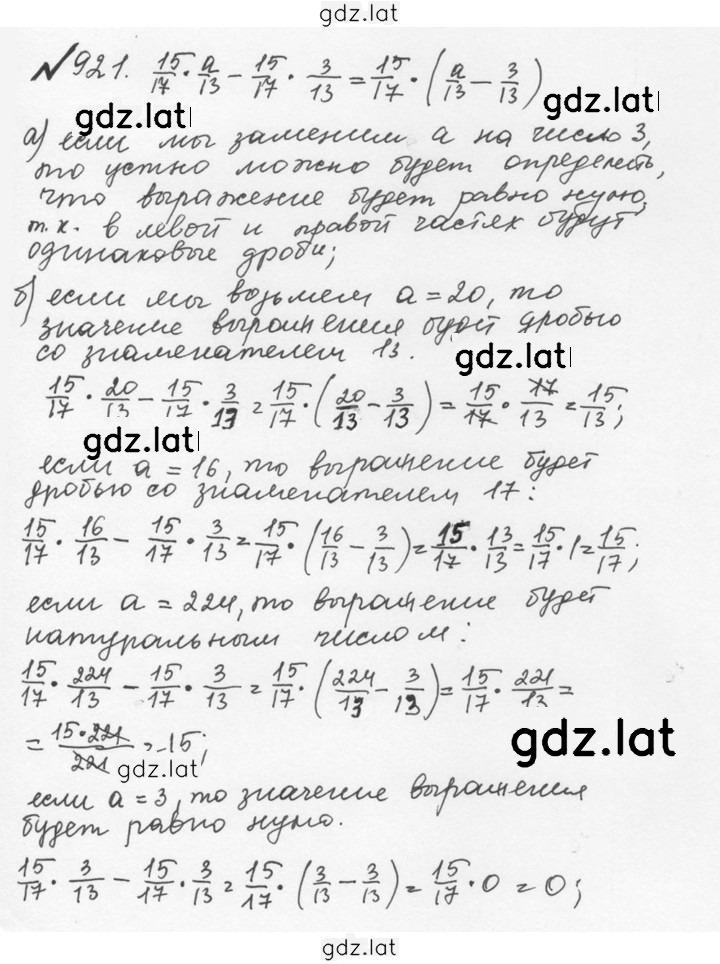 gdz.lat
№921. 15/17 · a/13 − 15/17 · 3/13 = 15/17 · (a/13 − 3/13)
gdz.lat
а) если мы заменим а на число 3,
то устно можно будет определить,
что выражение будет равно нулю,
т.к. в левой и правой частях будут
одинаковые дроби;
б) если мы возьмем a = 20, то
значение выражения будет дробью
со знаменателем 13.
gdz.lat
15/17 · 20/13 − 15/17 · 3/13 = 15/17 · (20/13 − 3/13) = 15/17 · 17/13 = 15/13;
gdz.lat
если a = 16, то выражение будет
дробью со знаменателем 17:
15/17 · 16/13 − 15/17 · 3/13 = 15/17 · (16/13 − 3/13) = 15/17 · 13/13 = 15/17 · 1 = 15/17;
если a = 224, то выражение будет
натуральным числом:
15/17 · 224/13 − 15/17 · 3/13 = 15/17 · (224/13 − 3/13) = 15/17 · 221/13 =
= 15·221/221 = 15;
gdz.lat
gdz.lat
если a = 3, то значение выражения
будет равно нулю.
15/17 · 3/13 − 15/17 · 3/13 = 15/17 · (3/13 − 3/13) = 15/17 · 0 = 0;
gdz.lat